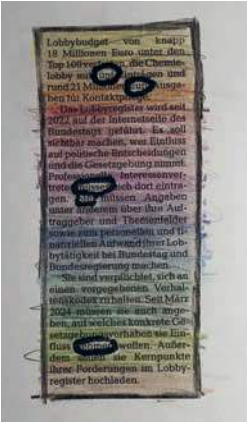 Lobbybudget von knapp
18 Millionen Euro unter den
Top 100 die Chemie-
lobby mit und
rund 21 Ausga-
ben für
Das Lobbyregister wird seit
2022 auf der Internetseite des
Bundestags geführt. Es soll
sichtbar machen, wer Einfluss
auf politische Entscheidungen
und die Gesetzgebung nimmt.
Professionelle Interessenver-
treter müssen sich dort eintra-
gen. Sie müssen Angaben
unter anderem über ihre Auf-
traggeber und Themenfelder
sowie zum personellen und fi-
nanziellen Aufwand ihrer Lob-
bytätigkeit bei Bundestag und
Bundesregierung machen.
Sie sind verpflichtet, sich an
einen vorgegebenen Verhal-
tenskodex zu halten. Seit März
2024 müssen sie auch ange-
ben, auf welches konkrete Ge-
setzgebungsvorhaben sie Ein-
fluss nehmen wollen. Außer-
dem sie Kernpunkte
ihrer Forderungen im Lobby-
register hochladen.